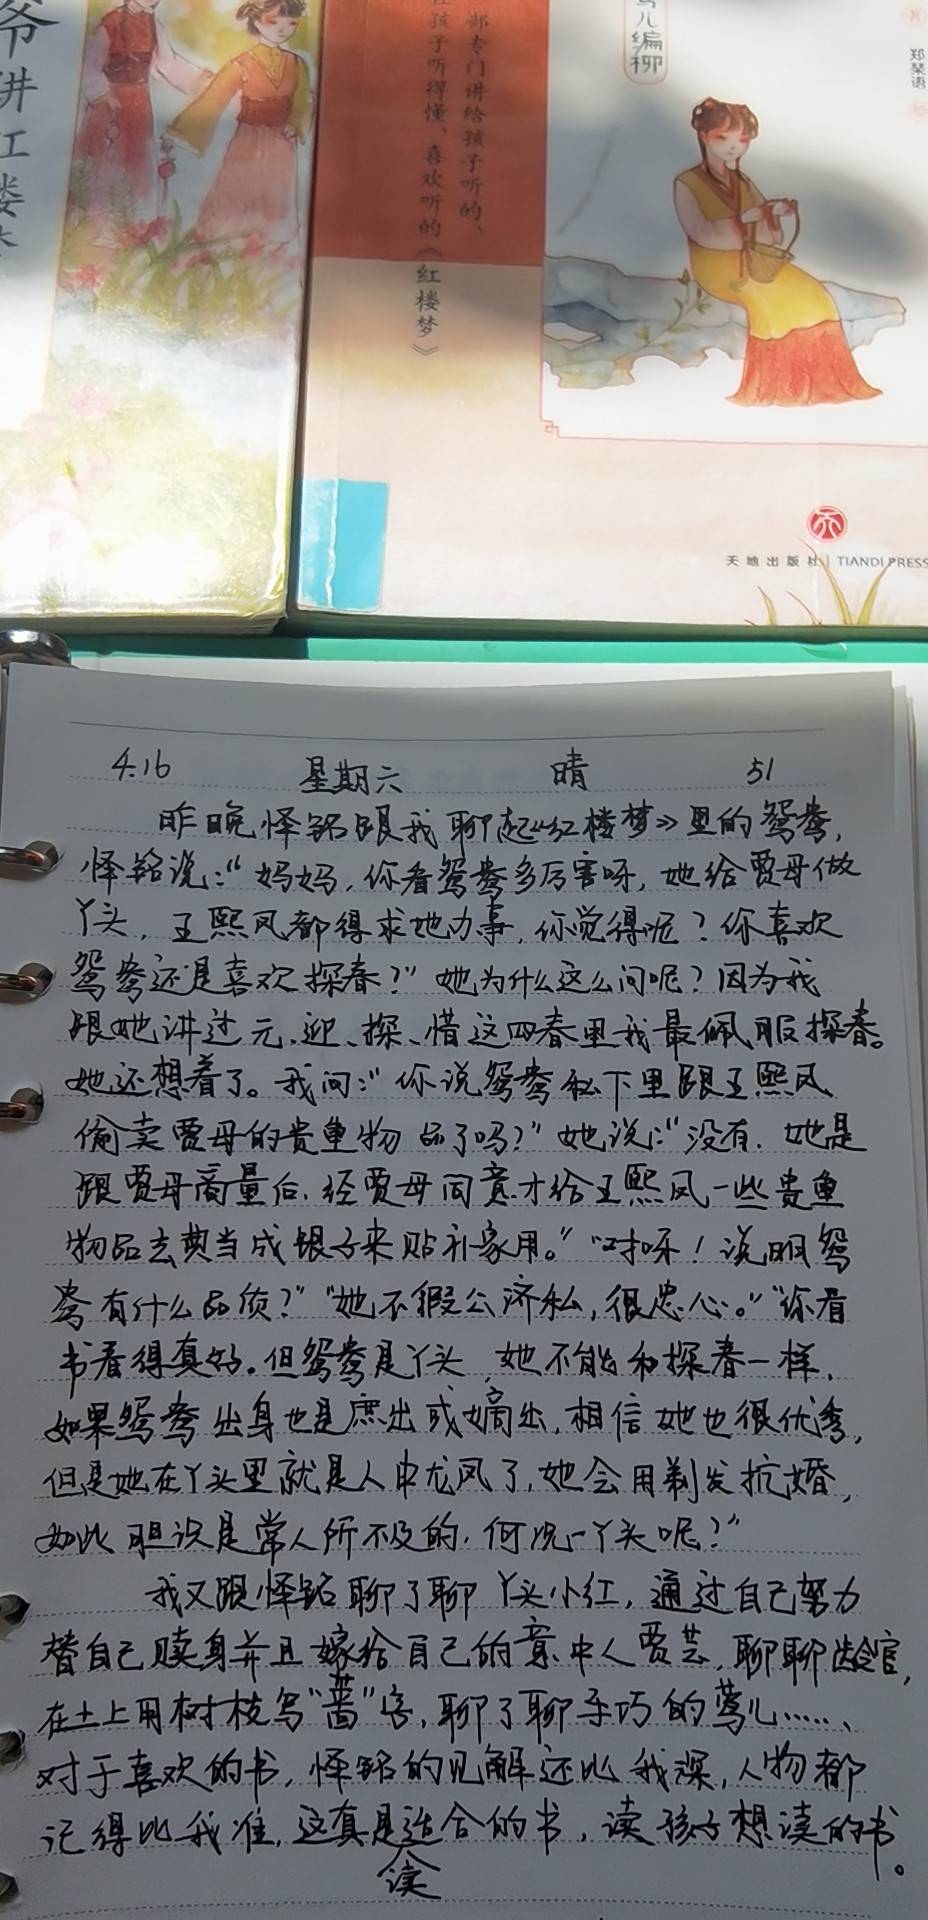 爷讲红楼
部专门讲给孩子听的、
孩子听得懂、喜欢听的《红楼梦》
莺儿编柳
著
郑琹语
绘
天地出版社 TIANDI PRESS
4.16 星期六 晴 51
昨晚怿铭跟我聊起《红楼梦》里的鸳鸯,
怿铭说:“妈妈,你看鸳鸯多厉害呀,她给贾母做
丫头,王熙凤都得求她办事,你觉得呢?你喜欢
鸳鸯还是喜欢探春?”她为什么这么问呢?因为我
跟她讲过元、迎、探、惜这四春里我最佩服探春。
她还想着了。我问:“你说鸳鸯私下里跟王熙凤
偷卖贾母的贵重物品了吗?”她说:“没有,她是
跟贾母商量后,经贾母同意才给王熙凤一些贵重
物品去典当成银子来贴补家用。”“对呀!说明鸳
鸯有什么品质?”“她不假公济私,很忠心。”“你看
书看得真好。但鸳鸯是丫头,她不能和探春一样,
如果鸳鸯出身也是庶出或嫡出,相信她也很优秀,
但是她在丫头里就是人中龙凤了,她会用剃发抗婚,
如此胆识是常人所不及的,何况一丫头呢?”
我又跟怿铭聊了聊丫头小红,通过自己努力
替自己赎身并且嫁给自己的意中人贾芸,聊聊龄官,
在土上用树枝写“蔷”字,聊了聊手巧的莺儿……、
对于喜欢的书,怿铭的见解还比我深,人物都
记得比我准,这真是适合读的书,读孩子想读的书。